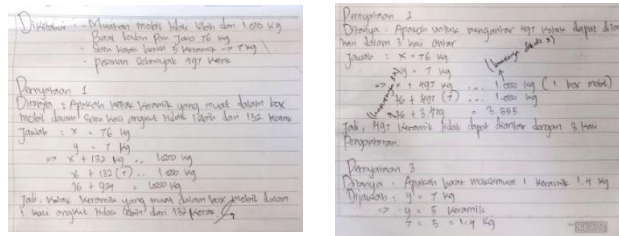 Diketahui : - Muatan mobil tidak lebih dari 1.000 kg
Berat badan Pak Joko 76 kg
- Satu kotak berisi 5 keramik => 7 kg
- pesanan sebanyak 497 kotak
Pernyataan 1
Ditanya : Apakah kotak keramik yang muat dalam box
mobil dalam satu kali angkut tidak lebih dari 132 kotak
Jawab : x = 76 kg
y = 7 kg
=> x + 132 kg .. 1.000 kg
76 + 132 (7) .. 1.000 kg
76 + 924 = 1.000 kg
Jadi, kotak keramik yang muat dalam box mobil dalam
1 kali angkut tidak lebih dari 132 kotak
Pernyataan 2
Ditanya : Apakah untuk mengantar 497 kotak dapat
dalam 3 kali antar
Jawab : x = 76 kg
y = 7 kg
=> x + 497 kg ... 1.000 kg (1 box mobil)
76 + 497 (7) ... 1.000 kg
76 + 3.479 = 3.555
Jadi, 497 keramik tidak dapat diantar dengan 3 kali
pengantaran.
Pernyataan 3
Ditanya : Apakah berat maksimum 1 keramik 1.4 kg
Dijawab : y = 7 kg
=> y = 5 keramik
7 = 5 = 1.4 kg